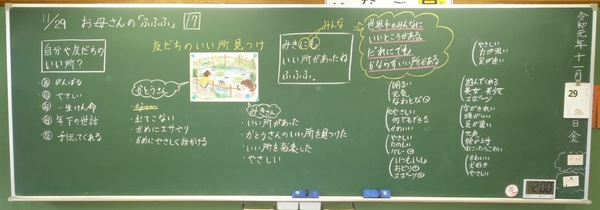 11/29 お母さんの「ふふふ」 17
自分や友だちの
いい所?
がんばる
やさしい
一生けん命
年下の世話
手伝ってくれる
友だちのいい所見つけ
かとうさん
出てこない
かめにエサやり
かめにやさしく話かける
みきさん
いい所があった
かとうさんのいい所を見つけた
いい所を発表した
やさしい
みんな
みきにも
いい所があったね
ふふふ。
世界中のみんなに
いいところがある。
だれにでも
かならずいい所がある
明るい
元気
なわとび
やさしい
何でもできる
かわいい
やさしい
たのしい
バレー
いつもいっしょ
おどり
スポーツ
やさしい
力が強い
足が速い
遊んでくれる
スポーツ
字がきれい
頭がいい
足が速い
かわいい
犬好き
やさしい
令和元年十一月
29
日
金